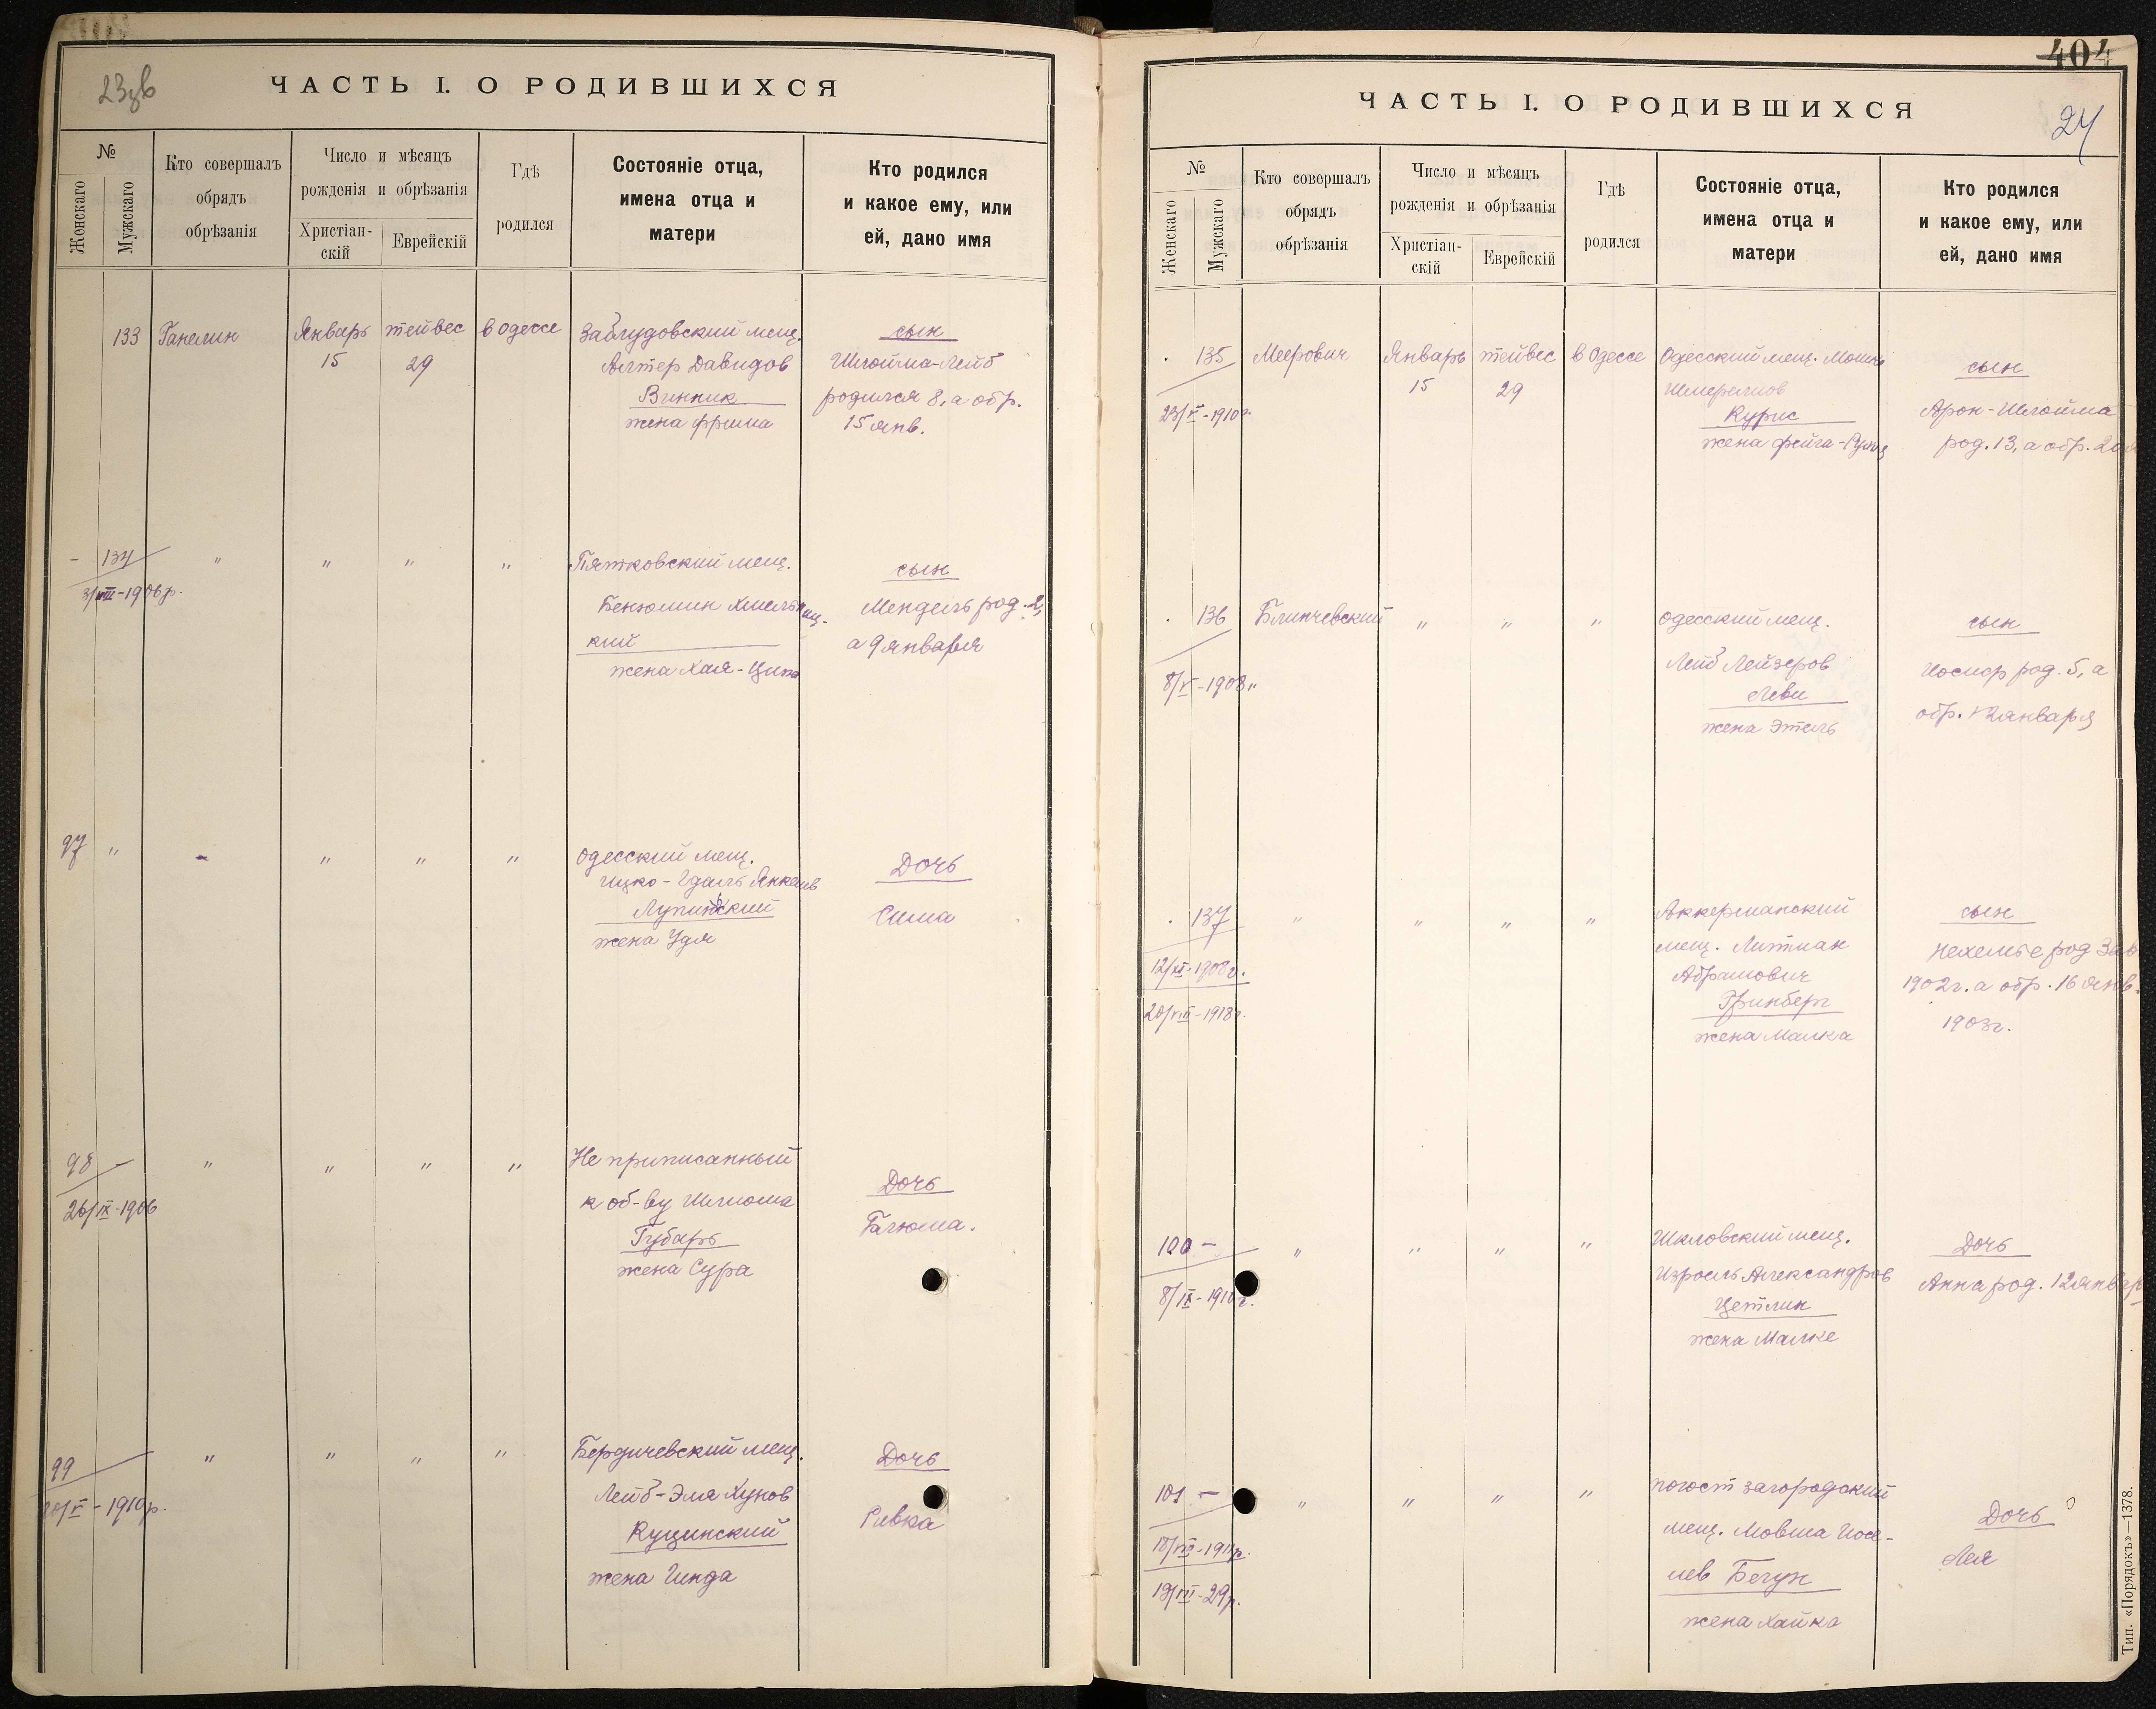 23зв
ЧАСТЬ I. О РОДИВШИХСЯ
№
Женскаго
Мужскаго
Кто совершалъ
обрядъ
обрѣзанія
Число и мѣсяцъ
рожденія и обрѣзанія
Христіан-
скій
Еврейскій
Гдѣ
родился
Состояніе отца,
имена отца и
матери
Кто родился
и какое ему, или
ей, дано имя
133 Ганелин Январь тейвес в Одессе Заблудовский мещ. сын
15 29 Алтер Давидов Шлойма-Лейб
Винник родился 8, а обр.
жена Фрима 15 янв.
- 134 " " " " Пятковский мещ. сын
31/VIII-1906р.
Бенюмин Хмельниц-
кий
Мендель род. 2,
а 9 января
жена Хая-Ципа
97 " - " " " Одесский мещ. Дочь
Ицко-Гдаль Янкелев
Лупинский Сима
жена Удя
98 - " " " " Не приписанный Дочь
26/IX-1906 к об-ву Шлиома
Губарь
жена Сура
99 " " " " Бердичевский мещ. Дочь
20/V-1910р. Лейб-Эля Хунов Ривка
Куцинский
жена Гинда
404
24
ЧАСТЬ I. О РОДИВШИХСЯ
№
Женскаго
Мужскаго
Кто совершалъ
обрядъ
обрѣзанія
Число и мѣсяцъ
рожденія и обрѣзанія
Христіан-
скій
Еврейскій
Гдѣ
родился
Состояніе отца,
имена отца и
матери
Кто родился
и какое ему, или
ей, дано имя
135 Меерович Январь тейвес в Одессе Одесский мещ. сын
15 29
Курис Арон-Шлойма
жена Фейга- род. 13, а обр. 20
136 Блинчевский " " " Одесский мещ. сын
8/V-1908 " Лейб Лейзеров Иосиф род. 5, а
Леви обр. 12 января
жена Этель
137 " " " " Аккерманский сын
12/XI-1908г. мещ. Литман Нехемье род
20/VIII-1918г. Абрамович 1902г. а обр. 16 янв.
Гринберг 1903г.
жена Малка
100 - " " " " Шкловский мещ. Дочь
8/IX-1910г. Изроель Александров Анна род. 12 январ
Цетлин
жена Малке
101 - " " " " погост загородский Дочь
18/VIII-1911р. мещ. Мовша Иосе- Лея
19/VII-29р. лев Бегун
жена Хайка
Тип. «Порядокъ»—1378.